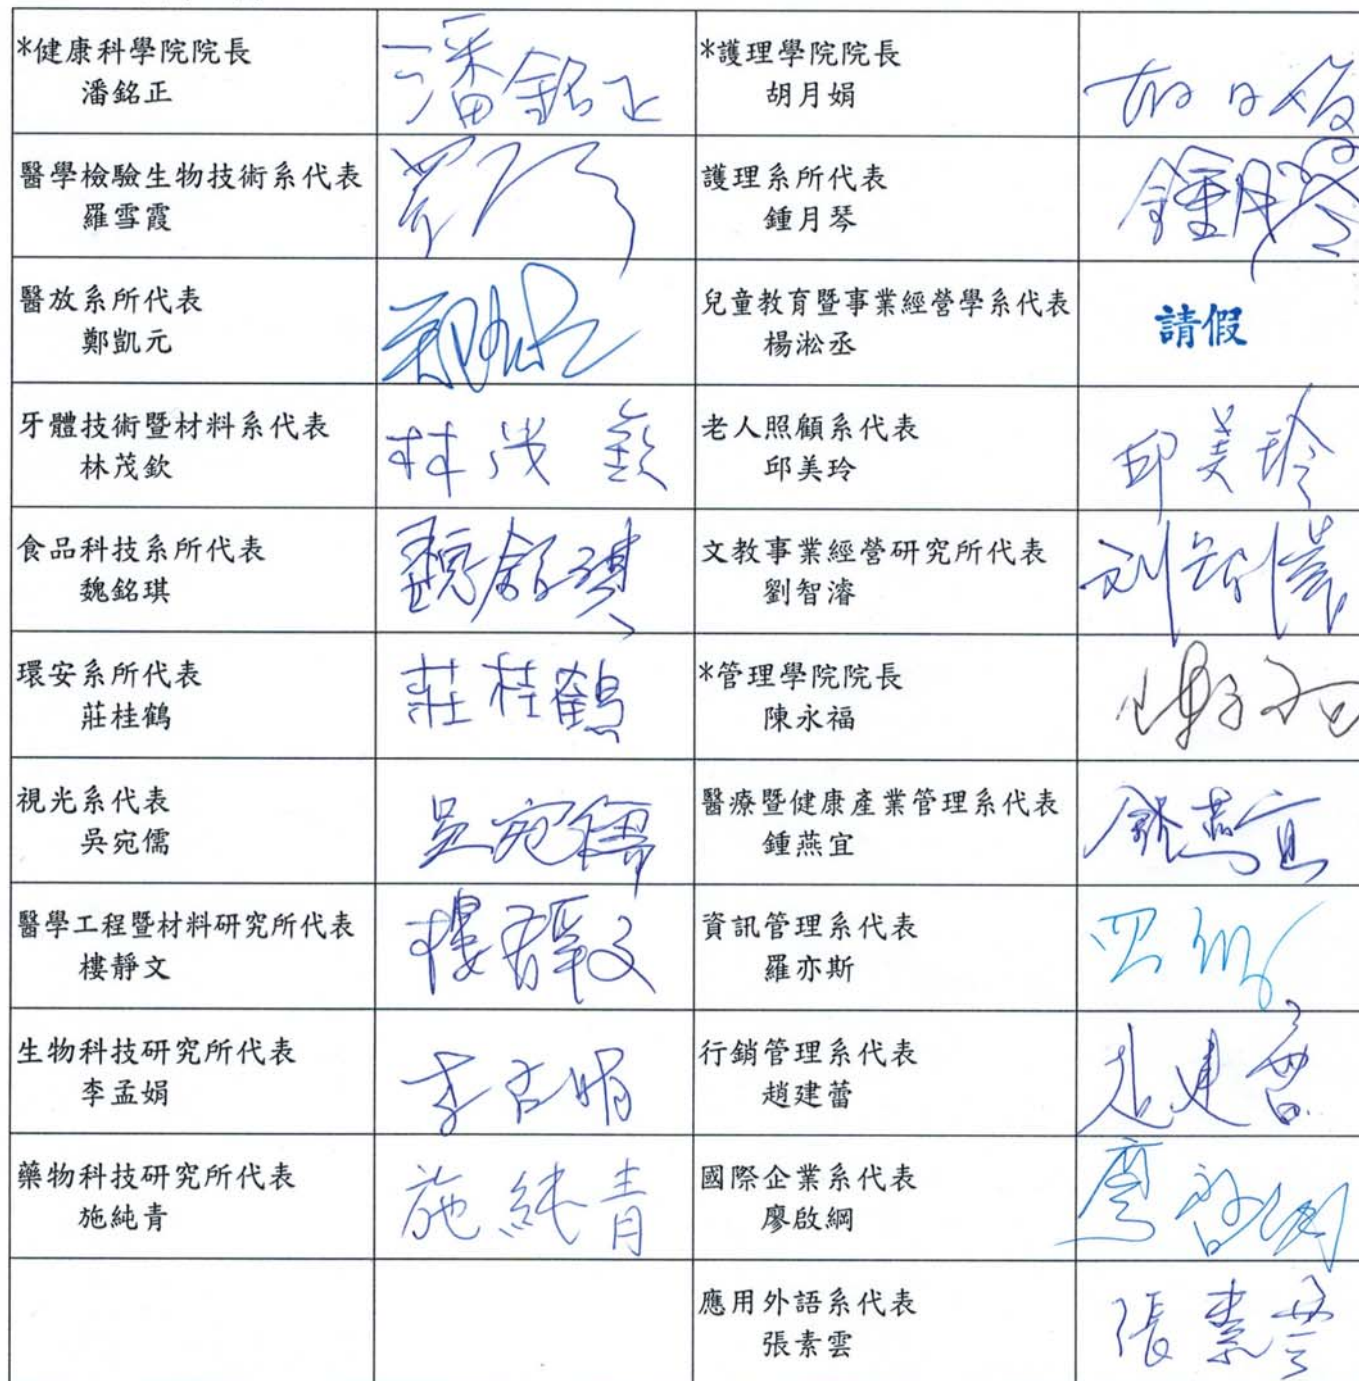 *健康科學院院長
潘銘正
潘銘正
*護理學院院長
胡月娟
醫學檢驗生物技術系代表
羅雪霞
護理系所代表
鍾月琴
鍾月琴
醫放系所代表
鄭凱元
兒童教育暨事業經營學系代表
楊淞丞
請假
牙體技術暨材料系代表
林茂欽
林茂欽
老人照顧系代表
邱美玲
邱美玲
食品科技系所代表
魏銘琪
魏銘琪
文教事業經營研究所代表
劉智濬
環安系所代表
莊桂鶴
莊桂鶴
*管理學院院長
陳永福
視光系代表
吳宛儒
吳宛儒
醫療暨健康產業管理系代表
鍾燕宜
鍾燕宜
醫學工程暨材料研究所代表
樓靜文
樓靜文
資訊管理系代表
羅亦斯
生物科技研究所代表
李孟娟
李孟娟
行銷管理系代表
趙建蕾
藥物科技研究所代表
施純青
施純青
國際企業系代表
廖啟綱
廖啟綱
應用外語系代表
張素雲
張素雲